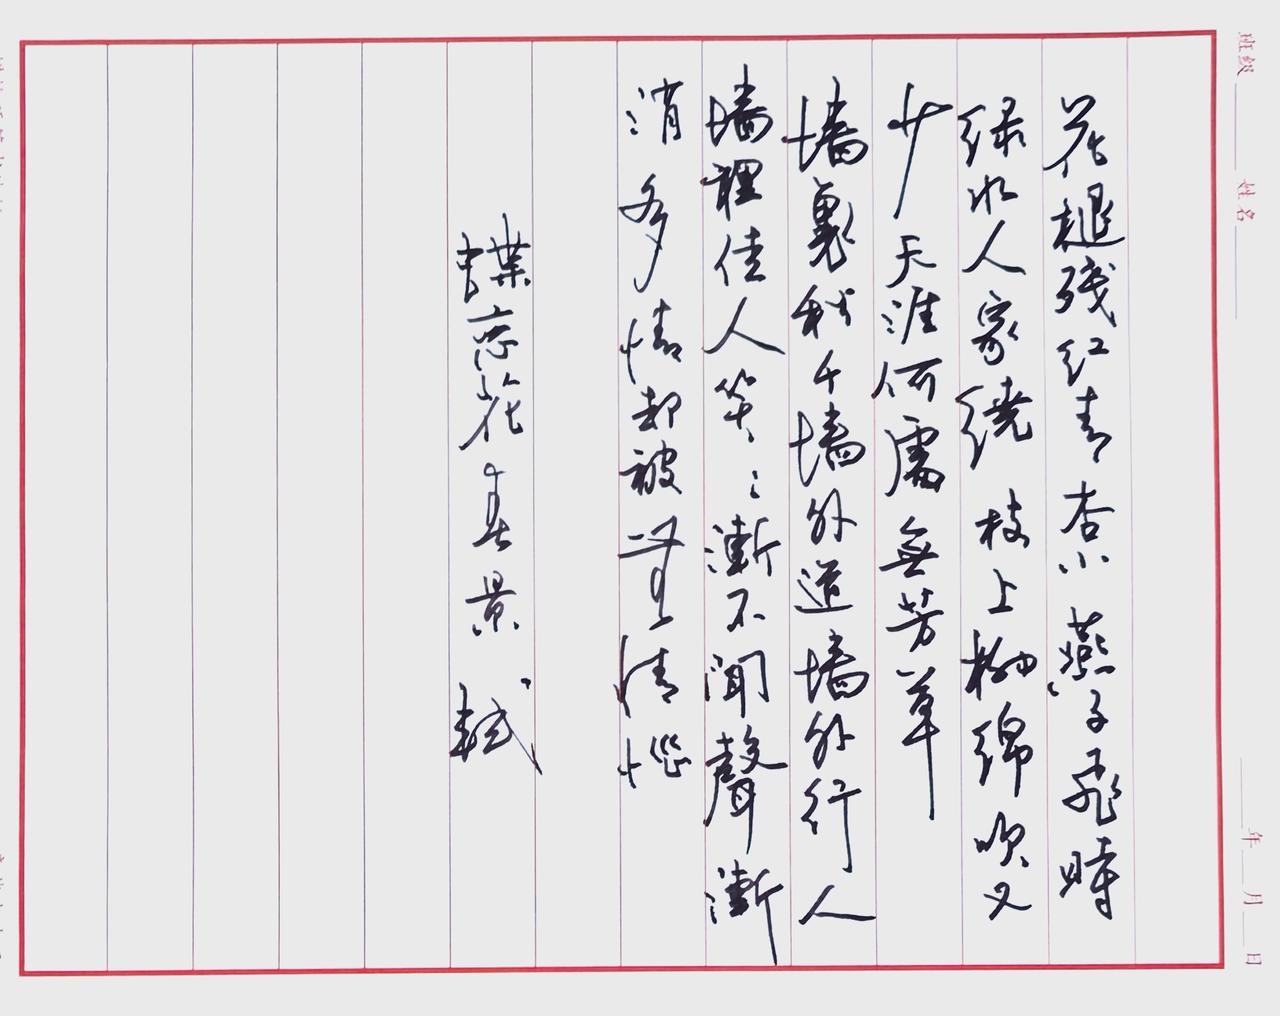 班级 姓名 年 月 日
花褪残红青杏小燕子飛時
绿水人家繞枝上柳綿吹又
少天涯何處無芳草
墙裏秋千墙外道墙外行人
墙裡佳人笑〻漸不聞聲漸
消多情却被無情惱
蝶恋花春景 軾